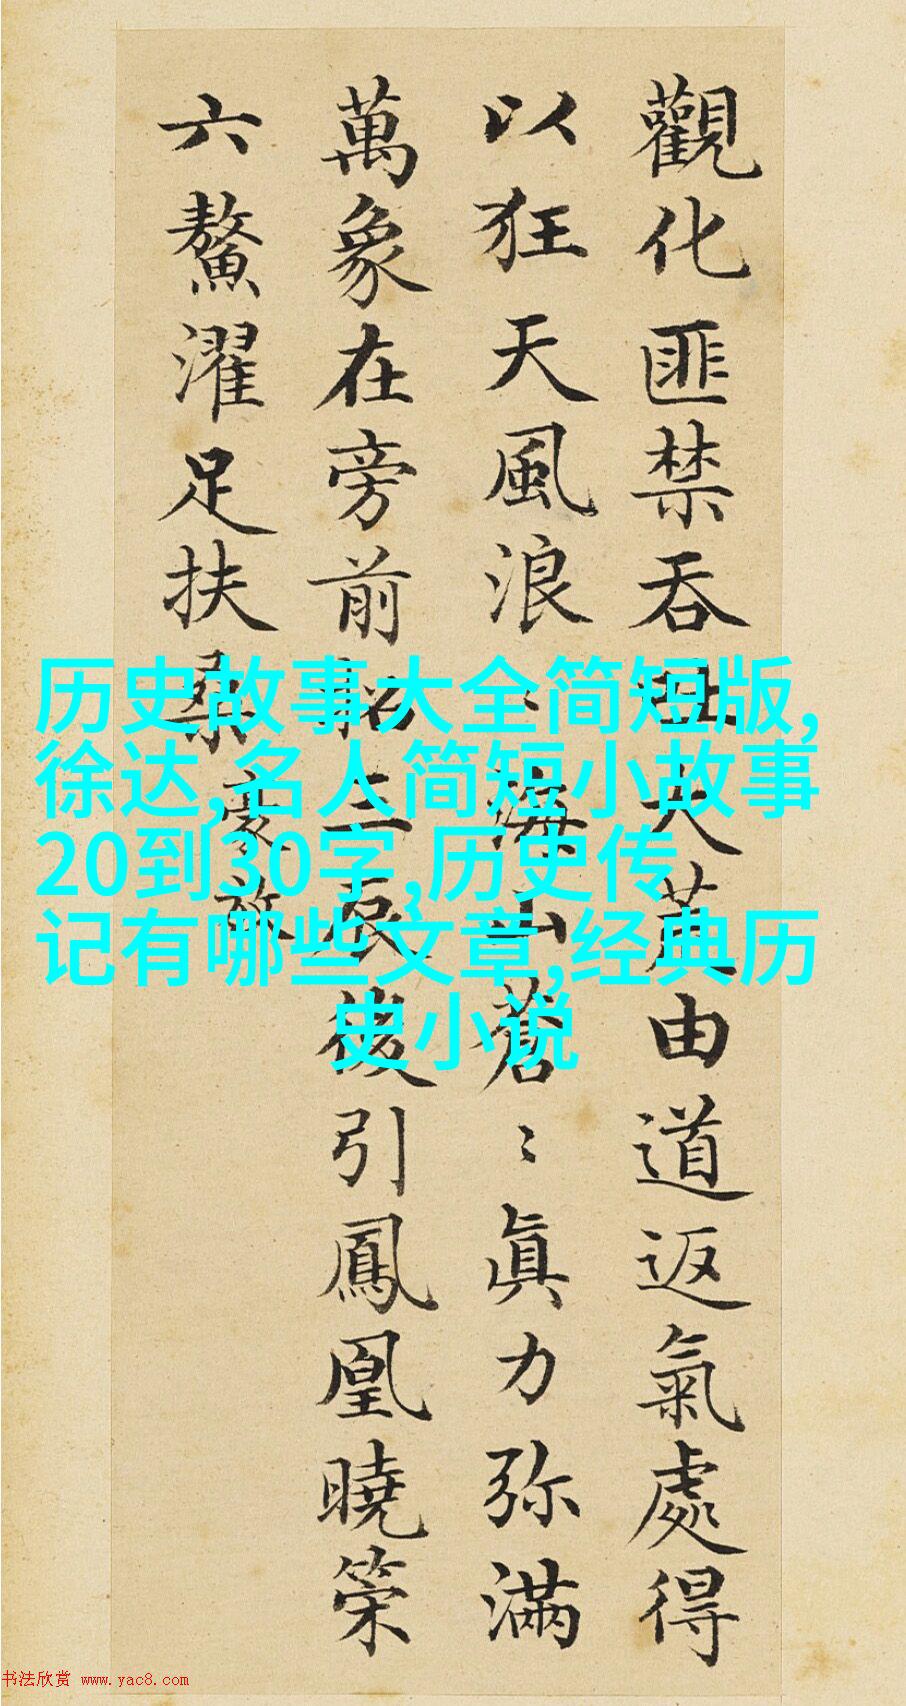 觀化匪禁吞吐大荒由道返氣處得
以狂天風浪〻海山蒼〻眞力弥滿
萬象在旁前招三辰後引鳳凰曉策
六鰲濯足扶桑
豪放
历史故事大全简短版,
徐达,名人简短小故事
20到30字,历史传
记有哪些文章,经典历
史小说
书法欣赏 www.yac8.com